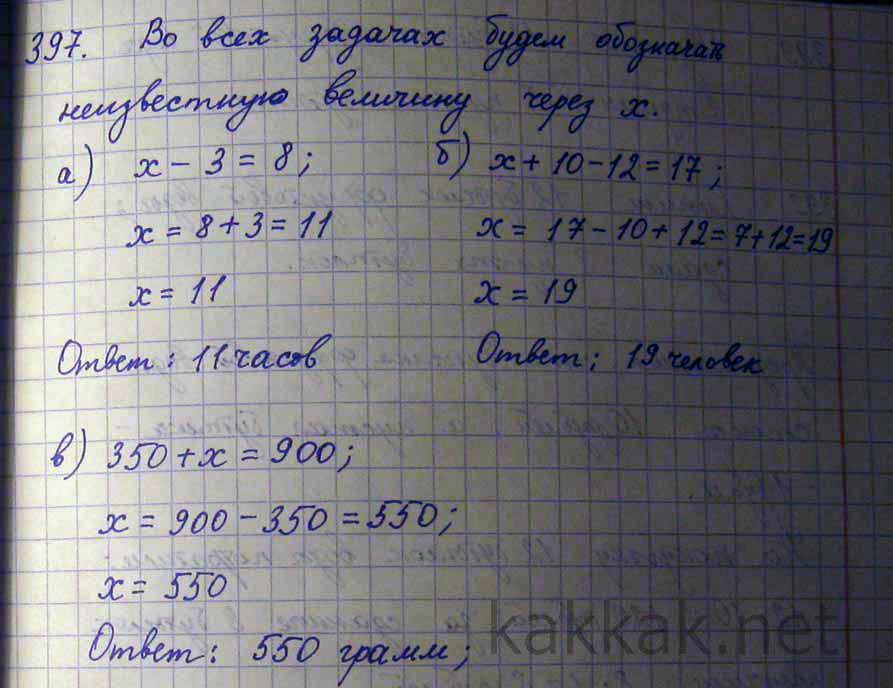 397. Во всех задачах будем обозначать
неизвестную величину через x.
а) x - 3 = 8;
x = 8 + 3 = 11
x = 11
Ответ: 11 часов
б) x + 10 - 12 = 17;
x = 17 - 10 + 12 = 7 + 12 = 19
x = 19
Ответ: 19 человек
в) 350 + x = 900;
x = 900 - 350 = 550;
x = 550
Ответ: 550 грамм;
kakkak.net